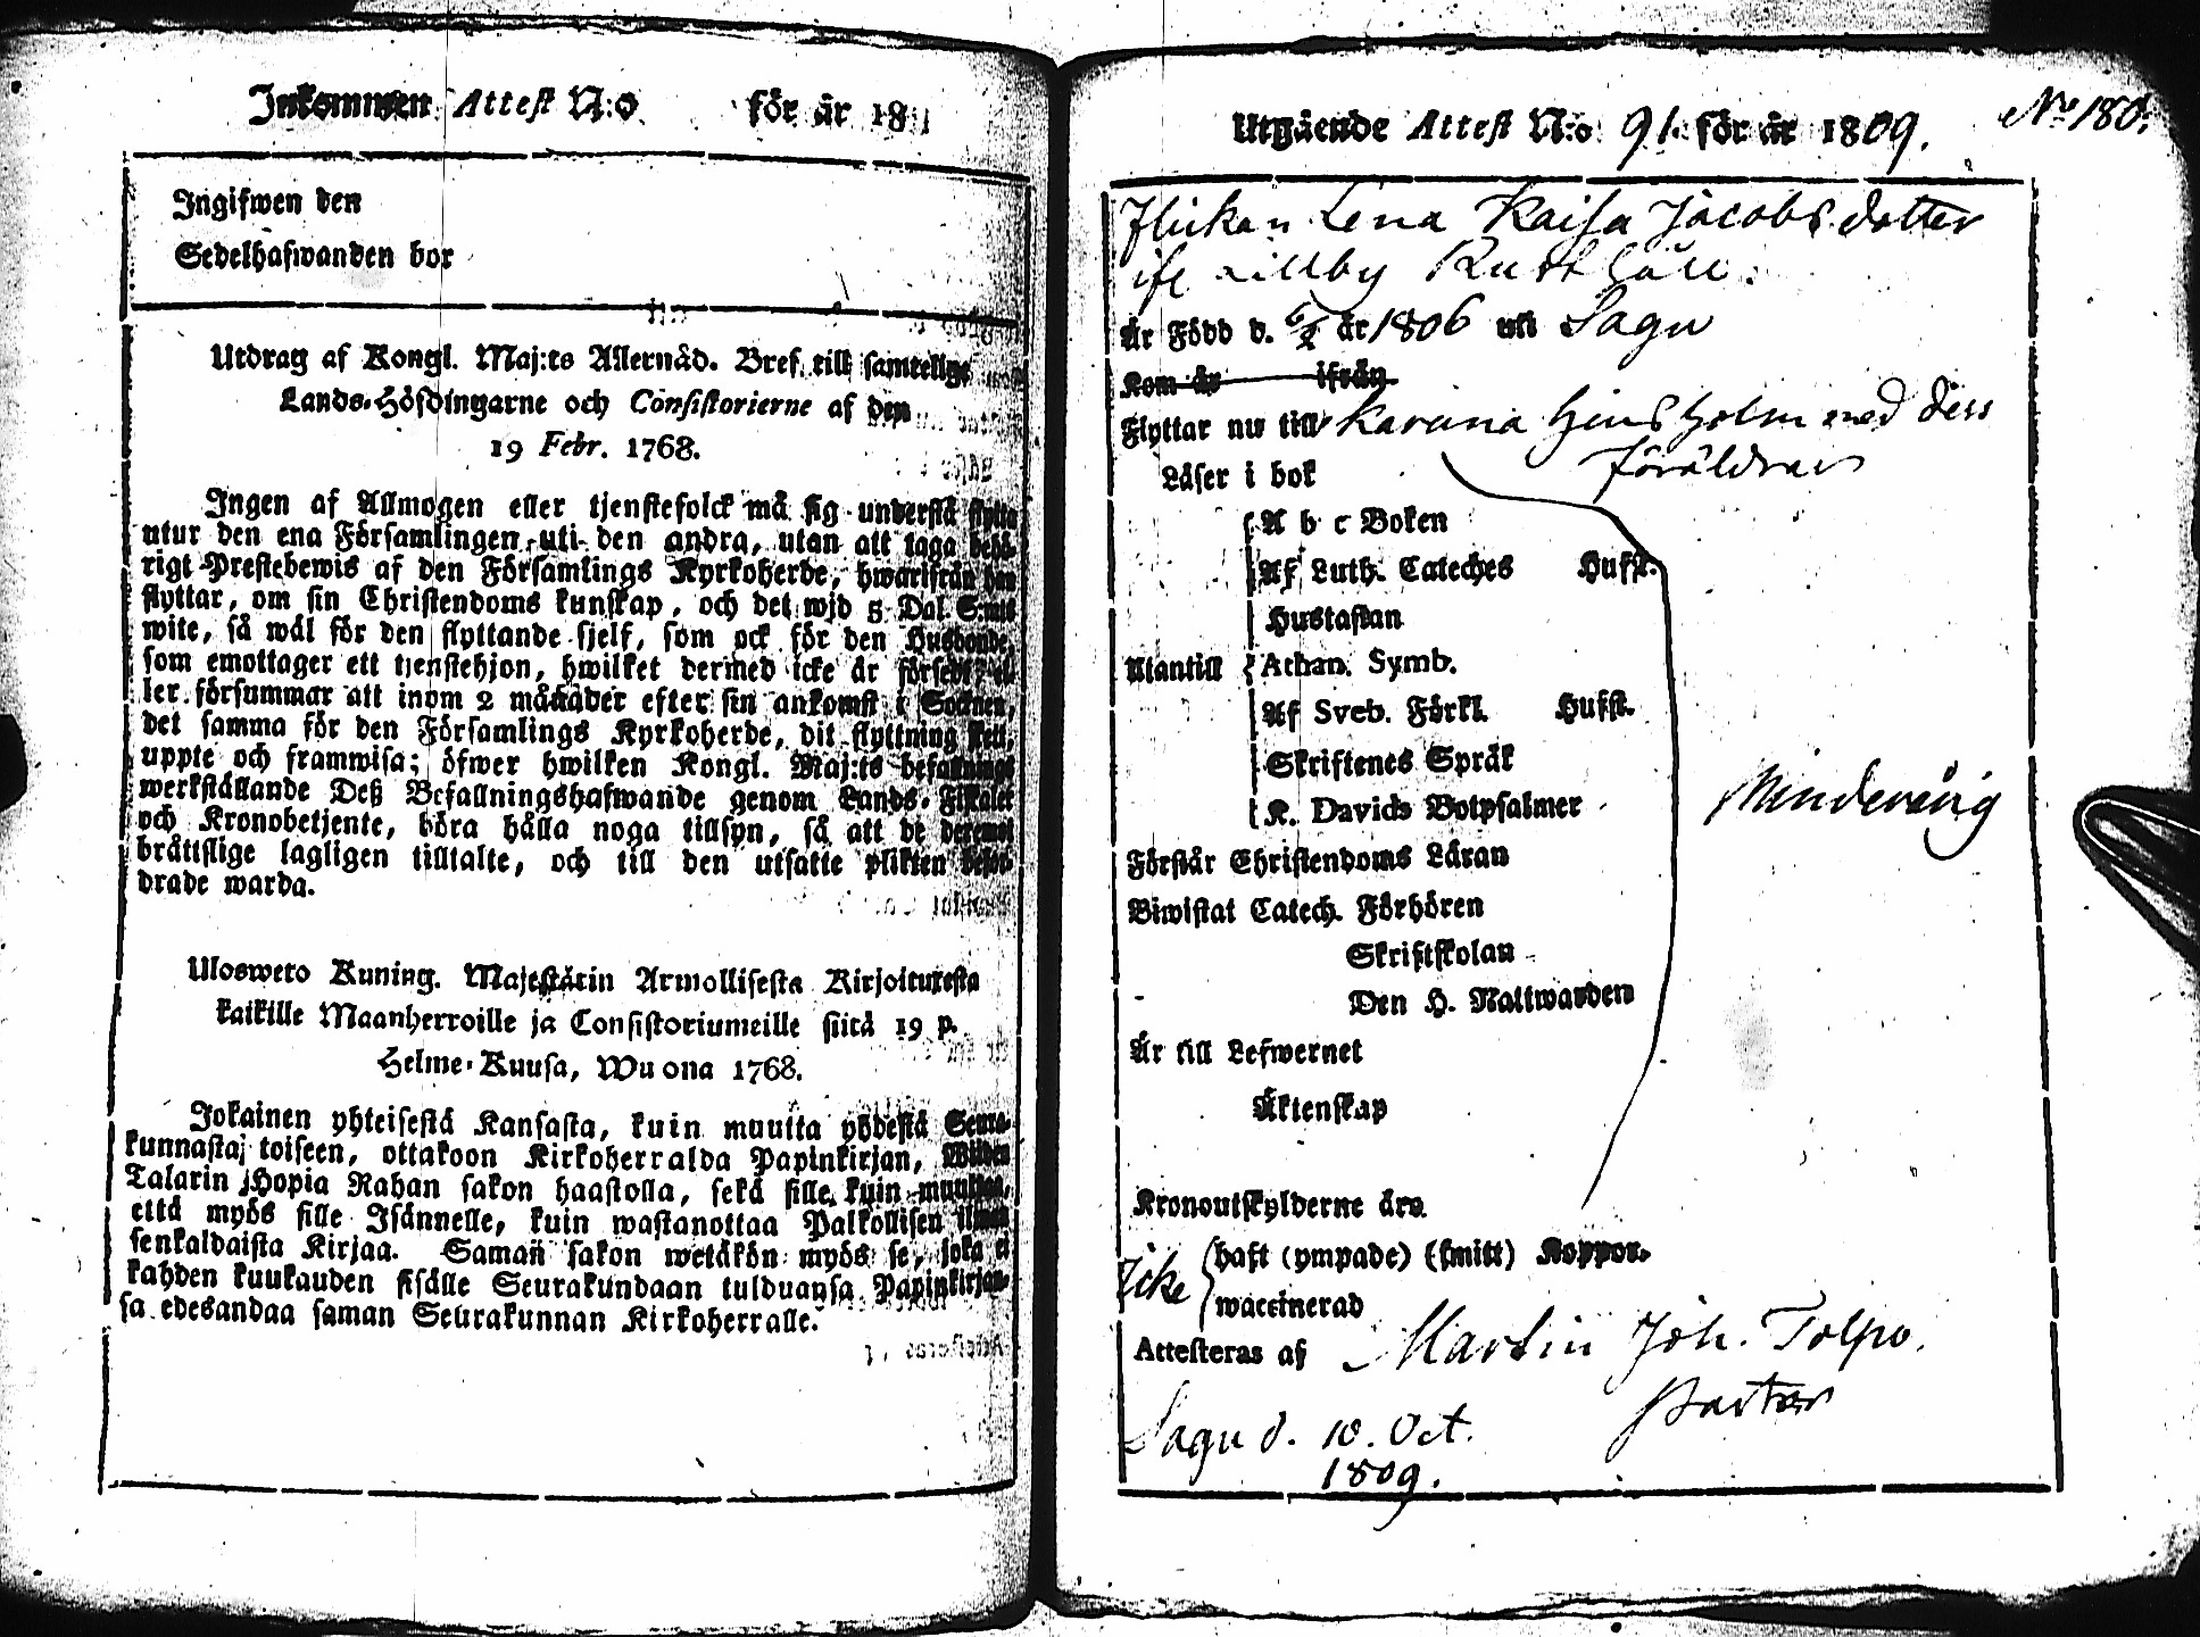 Inkommen Attest N:o för år 181
Ingifwen den
Sedelhafwanden bor
Utdrag af Kongl. Maj:ts Allernåd. Bref till samtelige
Lands-Höfdingarne och Consistorierne af den
19 Febr. 1768.
Ingen af Allmogen eller tjenstefolck må sig understå flytta
utur den ena Församlingen uti den andra, utan att taga behö-
rigt Prestebewis af den Församlings Kyrkoherde, hwarifrån han
flyttar, om sin Christendoms kunskap, och det wid 5 Dal. S:mt
wite, så wäl för den flyttande sjelf, som ock för den Husbonde,
som emottager ett tjenstehjon, hwilket dermed icke är försedt, el-
ler försummar att inom 2 månader efter sin ankomst i Socknen,
det samma för den Församlings Kyrkoherde, dit flyttning skett,
uppte och framwisa; öfwer hwilken Kongl. Maj:ts befallnings
werkställande Deß Befallningshafwande genom Lands-Fiskaler
och Kronobetjente, böra hålla noga tillsyn, så att de deremot
bråttslige lagligen tilltalte, och till den utsatte plikten befor-
drade warda.
Uloswero Kuning. Majestätin Armollisesta Kirjoituxesta
kaikille Maanherroille ja Consistoriumeille siitä 19 p.
Helme-Kuusa, Wuona 1768.
Jokainen yhteisestä Kansasta, kuin muutta yhdestä Seura-
kunnasta toiseen, ottakoon Kirkoherralda Papinkirjan, Wiiden
Talarin Hopia Rahan sakon haastolla, sekä sille kuin muuttaa,
että myös sille Isännelle, kuin wastanottaa Palkollisen ilman
senkaldaista Kirjaa. Saman sakon wetäkön myös se, joka ei
kahden kuukauden sisälle Seurakundaan tulduansa Papinkirjan-
sa edesandaa saman Seurakunnan Kirkoherralle.
No 180.
Utgående Attest N:o 91. för år 1809.
Flickan Lena Kaisa Jacobs dotter
ifr Lillby Rusthåll.
Är Född d. 6/2 år 1806 uti Sagu
Kom år ifrån
Flyttar nu till Karuna Hjulsholm med dess
föräldrar
Läser i bok
A b c Boken
Af Luth. Cateches Hufst.
Hustaflan
Utantill Athan. Symb.
Af Sveb. Förkl. Hufst.
Skriftenes Språk
K. Davids Botpsalmer
Minderårig
Förstår Christendoms Läran
Biwistat Catech. Förhören
Skriftskolan
Den H. Nattwarden
Är till Lefwernet
Äktenskap
Kronoutskylderne äro
Icke haft (ympade) (smitt) Koppor.
waccinerad
Attesteras af Martin Joh. Tolpo.
Pastor
Sagu d. 10. Oct.
1809.